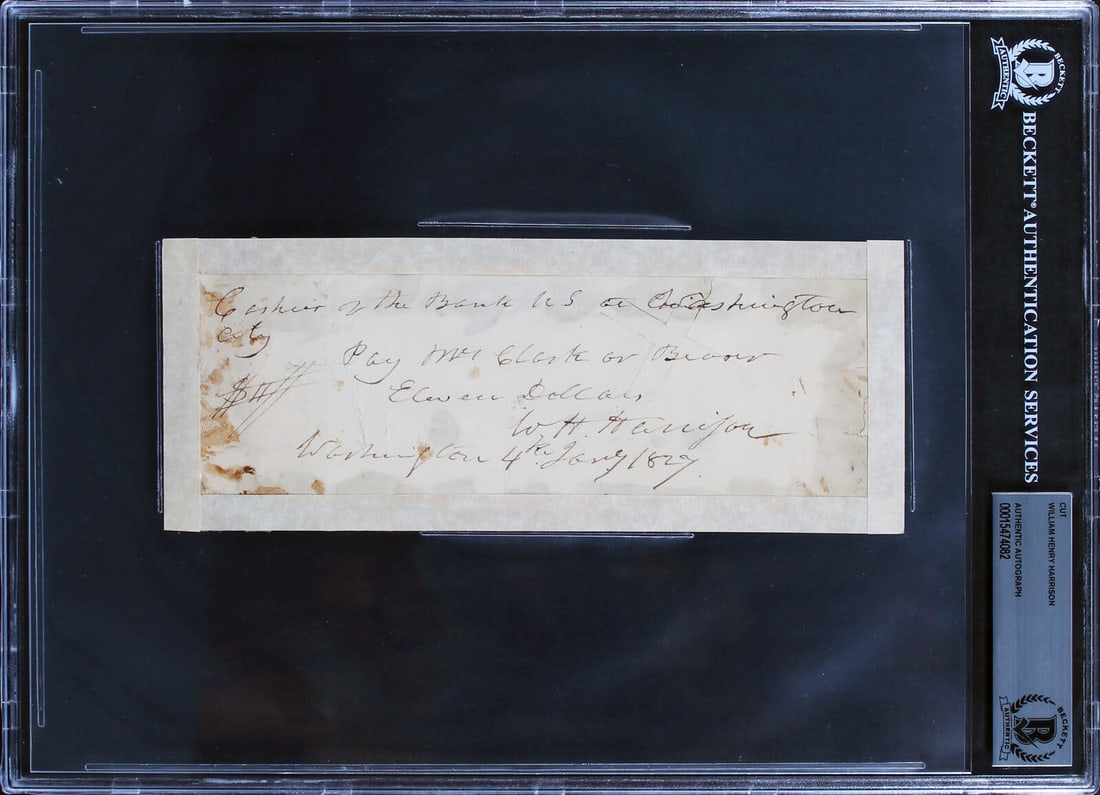 Cashier of the Bank U S at Washington
City
Pay Mr Clark or Bearer
$11
Eleven Dollars
W H Harrison
Washington 4th Jany 1827.
BECKETT
AUTHENTIC
BECKETT® AUTHENTICATION SERVICES
CUT
WILLIAM HENRY HARRISON
AUTHENTIC AUTOGRAPH
00015474082
BECKETT
AUTHENTIC